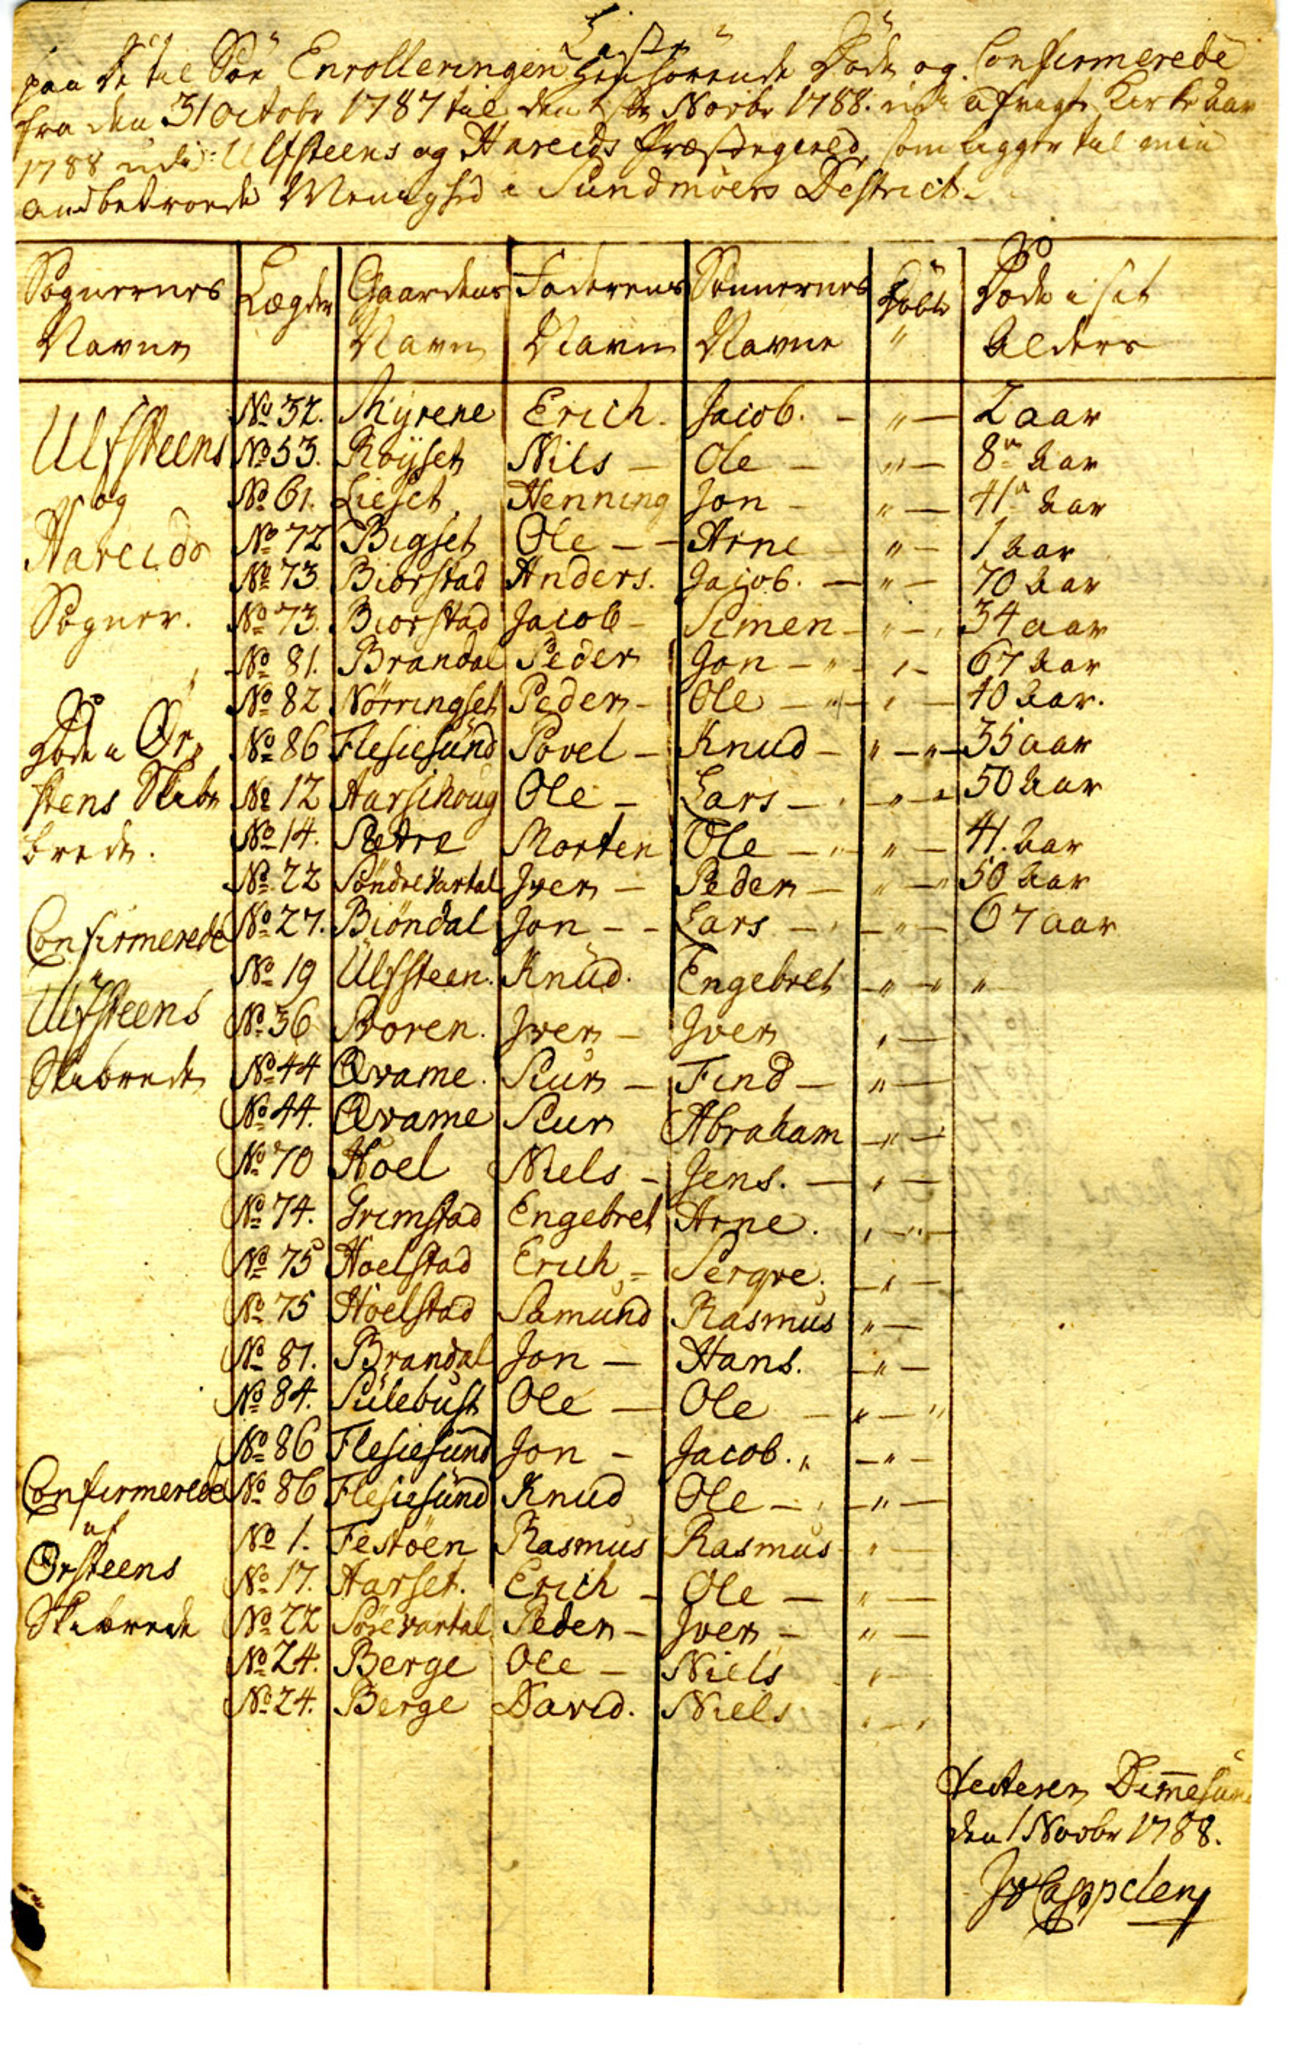 Liste
paa de til Söe Enrolleringen Henhörende Döde og Confirmerede
fra den 31 Octobr 1787 til den 1ste Novbr 1788. udi afvigte Kirke Aar
1788 udi Ulfsteens og Hareids Præstegield, som ligger til min
andbetroede Menighed i Sundmöers District.
Sognernes Navne | Lægder | Gaardens Navn | Faderens Navn | Sønnernes Navne | Döbte | Döde i sit Alders
Ulfsteens No 32. Myrene Erich. Jacob. - " - 2 aar
No 53. Röyset Nils - Ole - " - 8 Aar
og No 61. Lieset Henning Jon - " - 41 Aar
Hareids No 72 Bigset Ole - - Arne - " - 1 Aar
No 73. Biorstad Anders. Jacob. - " - 70 Aar
Sogner. No 73. Biorstad Jacob - Simen - " - 34 aar
No 81. Brandal Peder Jon - " - 67 Aar
No 82 Nörringset Peder - Ole - " - 40 Aar.
Döde i Ör= No 86 Flesiesünd Povel - Knud - " - 35 aar
stens Skib= No 12 Harsihoug Ole - Lars - " - 50 Aar
brede. No 14. Sætre Morten Ole - " - 41. Aar
No 22 Söndrevartal Iver - Peder - " - 50 Aar
Confirmerede No 27. Biöndal Jon - - Lars - " - 67 aar
i No 19 Ulfsteen. Knüd. Engebret - " - "
Ulfsteens No 36 Storen. Iver - Iver " -
Skibrede No 44 Qvame. Siur - Find - " -
No 44. Qvame Siur Abraham - " -
No 70 Hoel Niels - Jens. - " -
No 74. Grimstad Engebret Arne. " -
No 75 Hoelstad Erich - Sergve. - " -
No 75 Hoelstad Samund Rasmus " -
No 81. Brandal Jon - Hans. - " -
No 84. Sülebust Ole - Ole - " - "
No 86 Flesiesünd Jon - Jacob. " - " -
Confirmerede No 86 Flesiesünd Knud Ole - " -
af No 1. Festöen Rasmus Rasmus " -
Örsteens No 17. Harset. Erich - Ole - " -
Skibrede No 22 Sörevartal Peder - Iver - " -
No 24. Berge Ole - Niels " -
No 24. Berge David. Niels " -
Testerer Dimmesund
den 1 Novbr 1788.
Cappelen